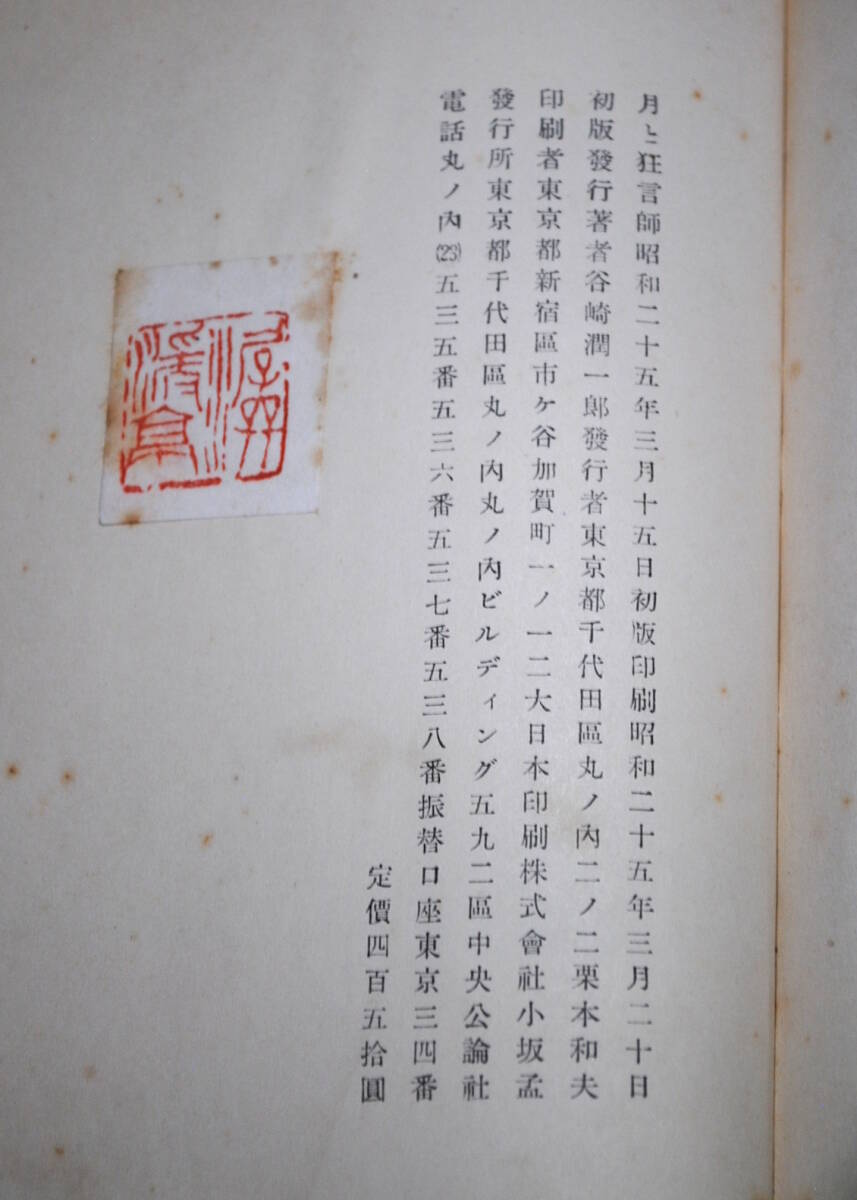 月と狂言師昭和二十五年三月十五日初版印刷昭和二十五年三月二十日
初版發行著者谷崎潤一郎發行者東京都千代田區丸ノ內二ノ二栗本和夫
印刷者東京都新宿區市ケ谷加賀町一ノ一二大日本印刷株式會社小坂孟
發行所東京都千代田區丸ノ內丸ノ內ビルディング五九二區中央公論社
電話丸ノ內(23)五三五番五三六番五三七番五三八番振替口座東京三四番
定價四百五拾圓